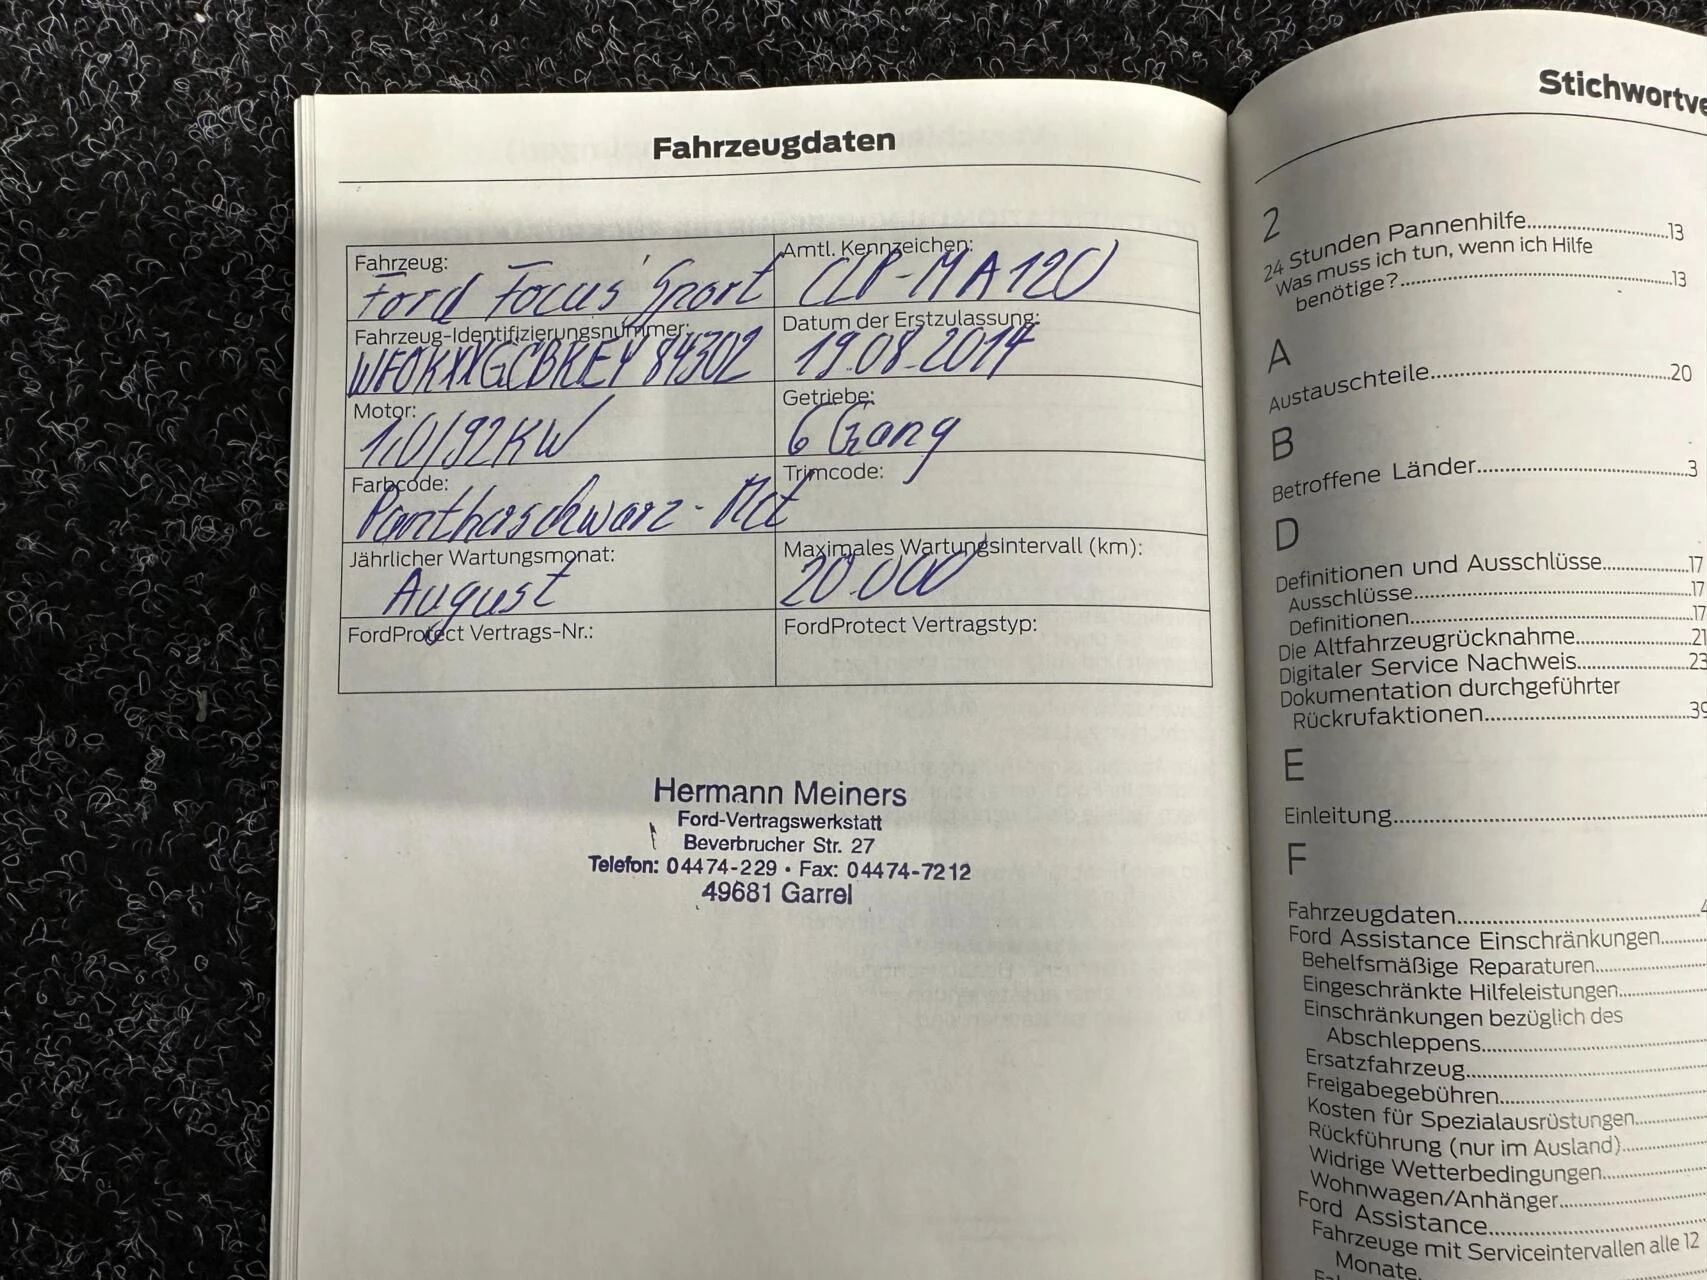 Fahrzeugdaten
Fahrzeug:
Ford Focus Sport
Amtl. Kennzeichen:
CLP-MA 120
Fahrzeug-Identifizierungsnummer:
WF0KXXGCBKEY84302
Datum der Erstzulassung:
19.08.2014
Motor:
1,0/92KW
Getriebe:
6 Gang
Farbcode:
Pantherschwarz-Met
Trimcode:
Jährlicher Wartungsmonat:
August
Maximales Wartungsintervall (km):
20.000
FordProtect Vertrags-Nr.:
FordProtect Vertragstyp:
Hermann Meiners
Ford-Vertragswerkstatt
Beverbrucher Str. 27
Telefon: 04474-229 • Fax: 04474-7212
49681 Garrel
Stichwortve
2
24 Stunden Pannenhilfe..........13
Was muss ich tun, wenn ich Hilfe
benötige?..........13
A
Austauschteile..........20
B
Betroffene Länder..........3
D
Definitionen und Ausschlüsse..........17
Ausschlüsse..........17
Definitionen..........17
Die Altfahrzeugrücknahme..........21
Digitaler Service Nachweis..........23
Dokumentation durchgeführter
Rückrufaktionen..........39
E
Einleitung..........
F
Fahrzeugdaten..........4
Ford Assistance Einschränkungen..........
Behelfsmäßige Reparaturen..........
Eingeschränkte Hilfeleistungen..........
Einschränkungen bezüglich des
Abschleppens..........
Ersatzfahrzeug..........
Freigabegebühren..........
Kosten für Spezialausrüstungen..........
Rückführung (nur im Ausland)..........
Widrige Wetterbedingungen..........
Wohnwagen/Anhänger..........
Ford Assistance..........
Fahrzeuge mit Serviceintervallen alle 12
Monate.